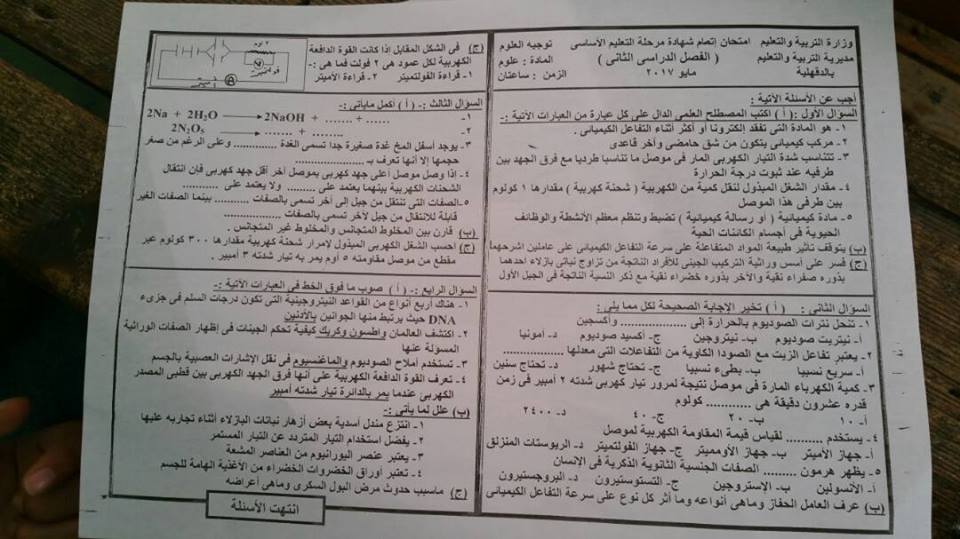 وزارة التربية والتعليم امتحان إتمام شهادة مرحلة التعليم الأساسى توجيه العلوم
مديرية التربية والتعليم ( الفصل الدراسى الثانى ) المادة : علوم
بالدقهلية مايو ٢٠١٧ الزمن : ساعتان
أجب عن الأسئلة الآتية :
السؤال الأول : ( أ ) اكتب المصطلح العلمى الدال على كل عبارة من العبارات الآتية :-
١- هو المادة التى تفقد إلكترونا أو أكثر أثناء التفاعل الكيميائى .
٢- مركب كيميائى يتكون من شق حامضى وآخر قاعدى
٣- تتناسب شدة التيار الكهربى المار فى موصل ما تناسبا طرديا مع فرق الجهد بين
طرفيه عند ثبوت درجة الحرارة
٤- مقدار الشغل المبذول لنقل كمية من الكهربية ( شحنة كهربية ) مقدارها ١ كولوم
بين طرفى هذا الموصل
٥- مادة كيميائية ( أو رسالة كيميائية ) تضبط وتنظم معظم الأنشطة والوظائف
الحيوية فى أجسام الكائنات الحية
(ب) يتوقف تأثير طبيعة المواد المتفاعلة على سرعة التفاعل الكيميائى على عاملين اشرحهما
(ج) فسر على أسس وراثية التركيب الجينى للأفراد الناتجة من تزاوج نباتى بازلاء أحدهما
بذوره صفراء نقية والآخر بذوره خضراء نقية مع ذكر النسبة الناتجة فى الجيل الأول
السؤال الثانى : ( أ ) تخير الإجابة الصحيحة لكل مما يلى :
١- تنحل نترات الصوديوم بالحرارة إلى ............... وأكسجين
أ- نيتريت صوديوم ب- نيتروجين ج- أكسيد صوديوم د- أمونيا
٢- يعتبر تفاعل الزيت مع الصودا الكاوية من التفاعلات التى معدلها ...............
أ- سريع نسبيا ب- بطىء نسبيا ج- تحتاج شهور د- تحتاج سنين
٣- كمية الكهرباء المارة فى موصل نتيجة لمرور تيار كهربى شدته ٢ أمبير فى زمن
قدره عشرون دقيقة هى ........... كولوم
أ- ١٠ ب- ٢٠ ج- ٤٠ د- ٢٤٠٠
٤- يستخدم .......... لقياس قيمة المقاومة الكهربية لموصل
أ- جهاز الأميتر ب- جهاز الأوميتر ج- جهاز الفولتميتر د- الريوستات المنزلق
٥- يظهر هرمون ......... الصفات الجنسية الثانوية الذكرية فى الإنسان
أ- الأنسولين ب- الإستروجين ج- التستوستيرون د- البروجستيرون
(ب) عرف العامل الحفاز وماهى أنواعه وما أثر كل نوع على سرعة التفاعل الكيميائى
(ج) فى الشكل المقابل إذا كانت القوة الدافعة
الكهربية لكل عمود هى ٢ فولت فما هى :-
١- قراءة الفولتميتر ٢- قراءة الأميتر
السؤال الثالث :- ( أ ) أكمل مايأتى :-
١- 2Na + 2H₂O → 2NaOH + ...... + ......
٢- 2N₂O₅ → ....... + ........
٣- يوجد أسفل المخ غدة صغيرة جدا تسمى الغدة ............. وعلى الرغم من صغر
حجمها إلا أنها تعرف بـ ...................
٤- اذا وصل موصل أعلى جهد كهربى بموصل آخر أقل جهد كهربى فإن انتقال
الشحنات الكهربية بينهما يعتمد على ......... ولا يعتمد على ...........
٥- الصفات التى تنتقل من جيل إلى آخر تسمى بالصفات .......... بينما الصفات الغير
قابلة للانتقال من جيل لآخر تسمى بالصفات ................
(ب) قارن بين المخلوط المتجانس والمخلوط غير المتجانس .
(ج) احسب الشغل الكهربى المبذول لإمرار شحنة كهربية مقدارها ٣٠٠ كولوم عبر
مقطع من موصل مقاومته ٥ أوم يمر به تيار شدته ٣ أمبير .
السؤال الرابع :- ( أ ) صوب ما فوق الخط فى العبارات الآتية :-
١- هناك أربع أنواع من القواعد النيتروجينية التى تكون درجات السلم فى جزىء
DNA حيث يرتبط منها الجوانين بالأدنين
٢- اكتشف العالمان واطسون وكريك كيفية تحكم الجينات فى إظهار الصفات الوراثية
المسؤلة عنها
٣- تستخدم أملاح الصوديوم والماغنسيوم فى نقل الإشارات العصبية بالجسم
٤- تعرف القوة الدافعة الكهربية على أنها فرق الجهد الكهربى بين قطبى المصدر
الكهربى عندما يمر بالدائرة تيار شدته أمبير
(ب) علل لما يأتى :-
١- انتزع مندل أسدية بعض أزهار نباتات البازلاء أثناء تجاربه عليها
٢- يفضل استخدام التيار المتردد عن التيار المستمر
٣- يعتبر عنصر اليورانيوم من العناصر المشعة
٤- تعتبر أوراق الخضروات الخضراء من الأغذية الهامة للجسم
(ج) ماسبب حدوث مرض البول السكرى وماهى أعراضه
انتهت الأسئلة